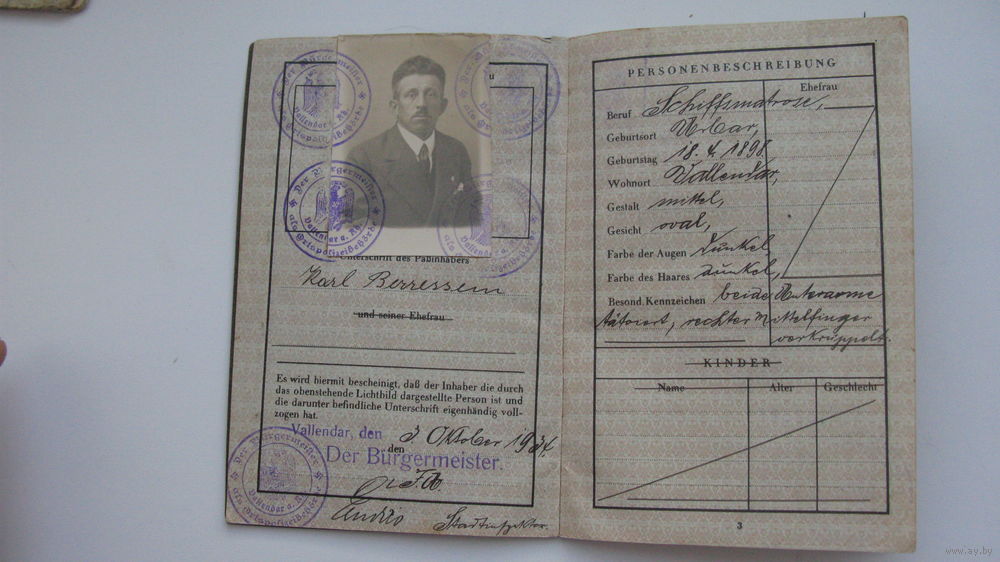 Der Bürgermeister
als Ortspolizeibehörde
Vallendar a. Rh.
Unterschrift des Paßinhabers
Karl Berressem
und seiner Ehefrau
Es wird hiermit bescheinigt, daß der Inhaber die durch
das obenstehende Lichtbild dargestellte Person ist und
die darunter befindliche Unterschrift eigenhändig voll-
zogen hat.
Vallendar, den 3. Oktober 1934.
den
Der Bürgermeister.
Stadtinspektor.
Der Bürgermeister
als Ortspolizeibehörde
Vallendar a. Rh.
PERSONENBESCHREIBUNG
Ehefrau
Beruf Schiffsmatrose,
Geburtsort Urbar,
Geburtstag 18. 4. 1898.
Wohnort Vallendar,
Gestalt mittel,
Gesicht oval,
Farbe der Augen dunkel
Farbe des Haares dunkel,
Besond. Kennzeichen beide Unterarme
tätoiert, rechter Mittelfinger
verkrüppelt.
KINDER
Name Alter Geschlecht
3
www.ay.by